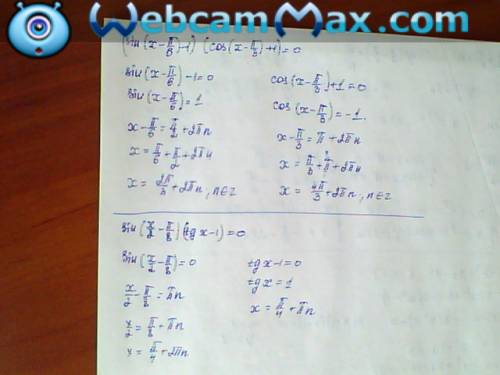 WebcamMax.com
(sin(x-π/6)-1) (cos(x-π/3)+1)=0
sin(x-π/6)-1=0
sin(x-π/6)=1
x-π/6=π/2+2πn
x=π/6+π/2+2πn
x=2π/3+2πn, n∈z
cos(x-π/3)+1=0
cos(x-π/3)=-1.
x-π/3=π+2πn
x=π/3+π+2πn
x=4π/3+2πn, n∈z
sin(x/2-π/8)(tgx-1)=0
sin(x/2-π/8)=0
x/2-π/8=πn
x/2=π/8+πn
x=π/4+2πn
tgx-1=0
tgx=1
x=π/4+πn